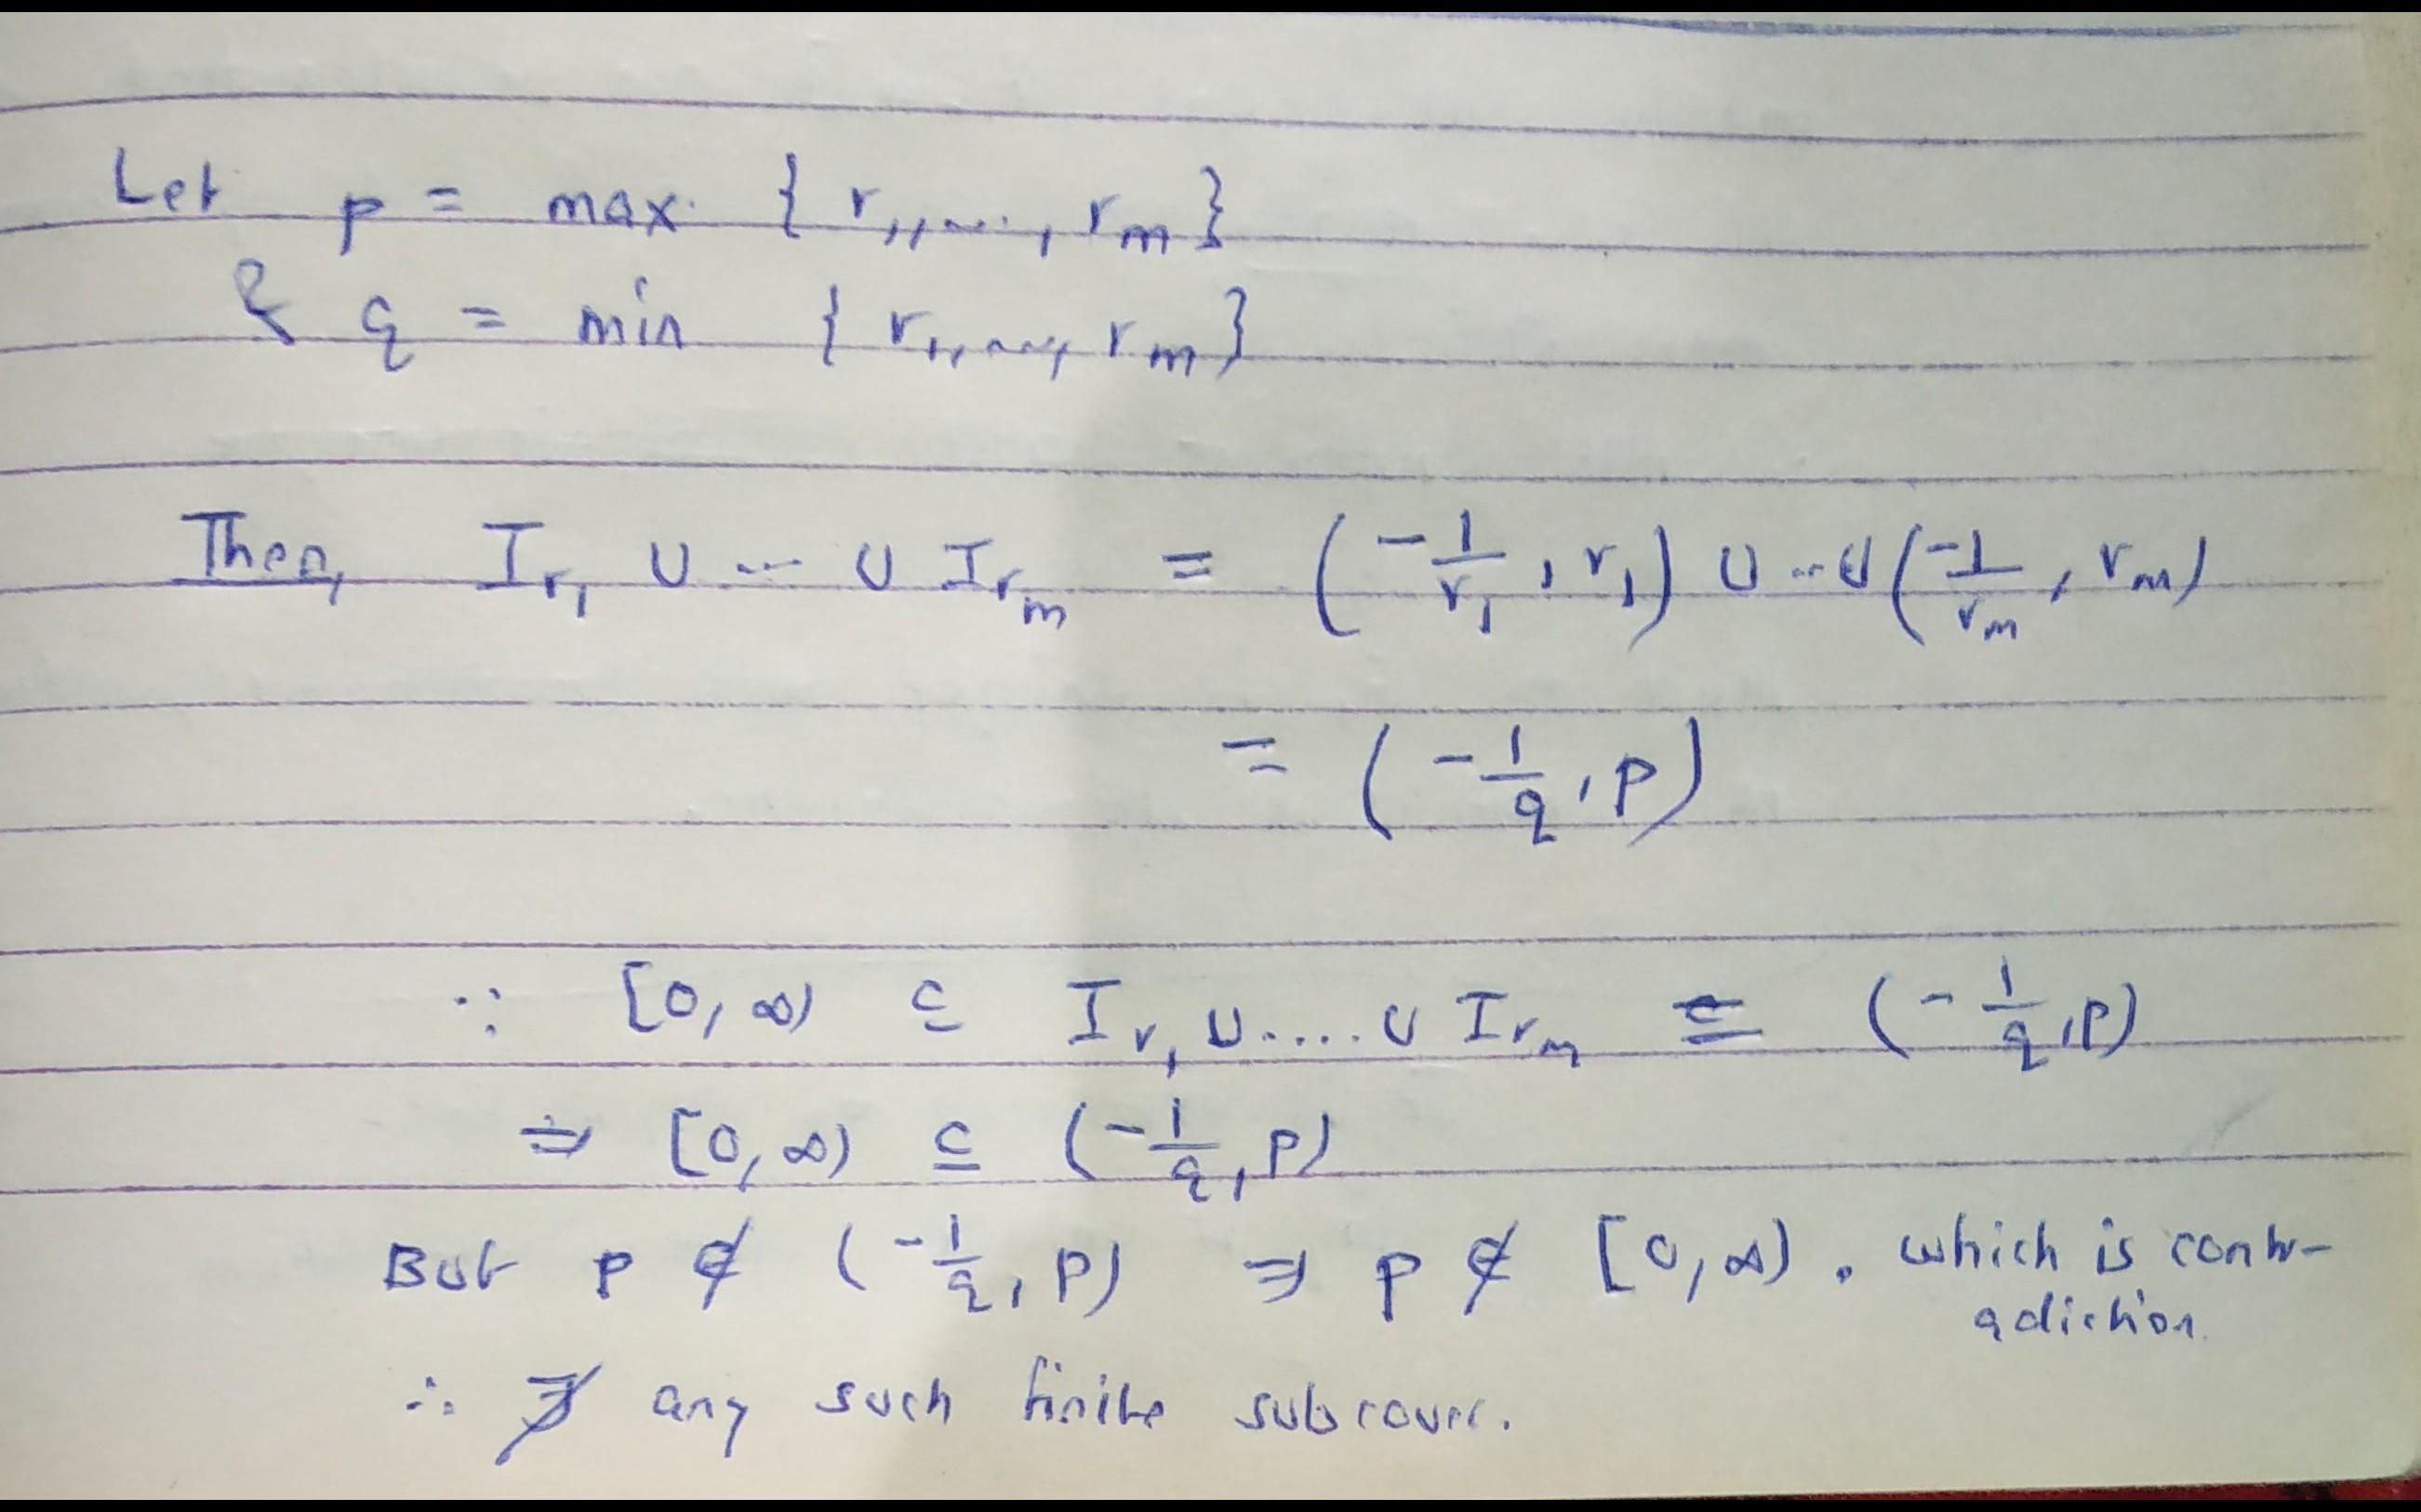 Let p = max. { r₁,....., rₘ}
& q = min { r₁,....., rₘ}
Then, Iᵣ₁ ∪ ... ∪ Iᵣₘ = (-1/r₁, r₁) ∪ ... ∪ (-1/rₘ, rₘ)
= (-1/q, p)
∵ [0, ∞) ⊆ Iᵣ₁ ∪ ..... ∪ Iᵣₘ = (-1/q, p)
⇒ [0, ∞) ⊆ (-1/q, p)
But p ∉ (-1/q, p) ⇒ p ∉ [0, ∞). which is contr-
adiction.
∴ ∄ any such finite subcover.